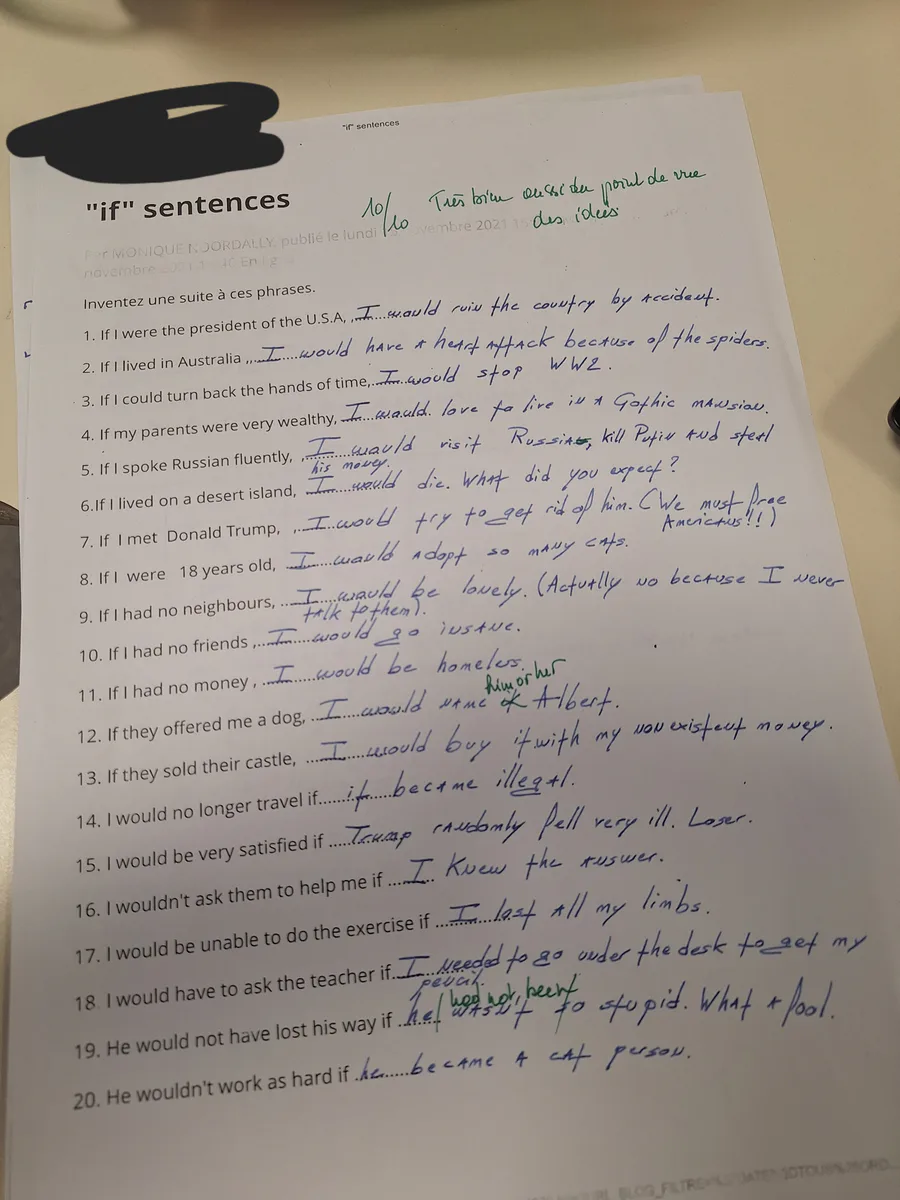 "if" sentences
"if" sentences
10/10 Très bien aussi du point de vue
des idées
MONIQUE NOORDALLY, publié le lundi novembre 2021
novembre
Inventez une suite à ces phrases.
1. If I were the president of the U.S.A, I would ruin the country by accident.
2. If I lived in Australia, I would have a heart attack because of the spiders.
3. If I could turn back the hands of time, I would stop WW2.
4. If my parents were very wealthy, I would love to live in a Gothic mansion.
5. If I spoke Russian fluently, I would visit Russia, kill Putin and steal
his money.
6.If I lived on a desert island, I would die. What did you expect?
7. If I met Donald Trump, I would try to get rid of him. (We must free
Americans!!)
8. If I were 18 years old, I would adopt so many cats.
9. If I had no neighbours, I would be lonely. (Actually no because I never
talk to them).
10. If I had no friends, I would go insane.
11. If I had no money, I would be homeless.
him or her
12. If they offered me a dog, I would name Albert.
13. If they sold their castle, I would buy it with my non existent money.
14. I would no longer travel if it became illegal.
15. I would be very satisfied if Trump randomly fell very ill. Loser.
16. I wouldn't ask them to help me if I knew the answer.
17. I would be unable to do the exercise if I lost all my limbs.
18. I would have to ask the teacher if I needed to go under the desk to get my
pencil.
had not been
19. He would not have lost his way if he wasn't so stupid. What a fool.
20. He wouldn't work as hard if he became a cat person.